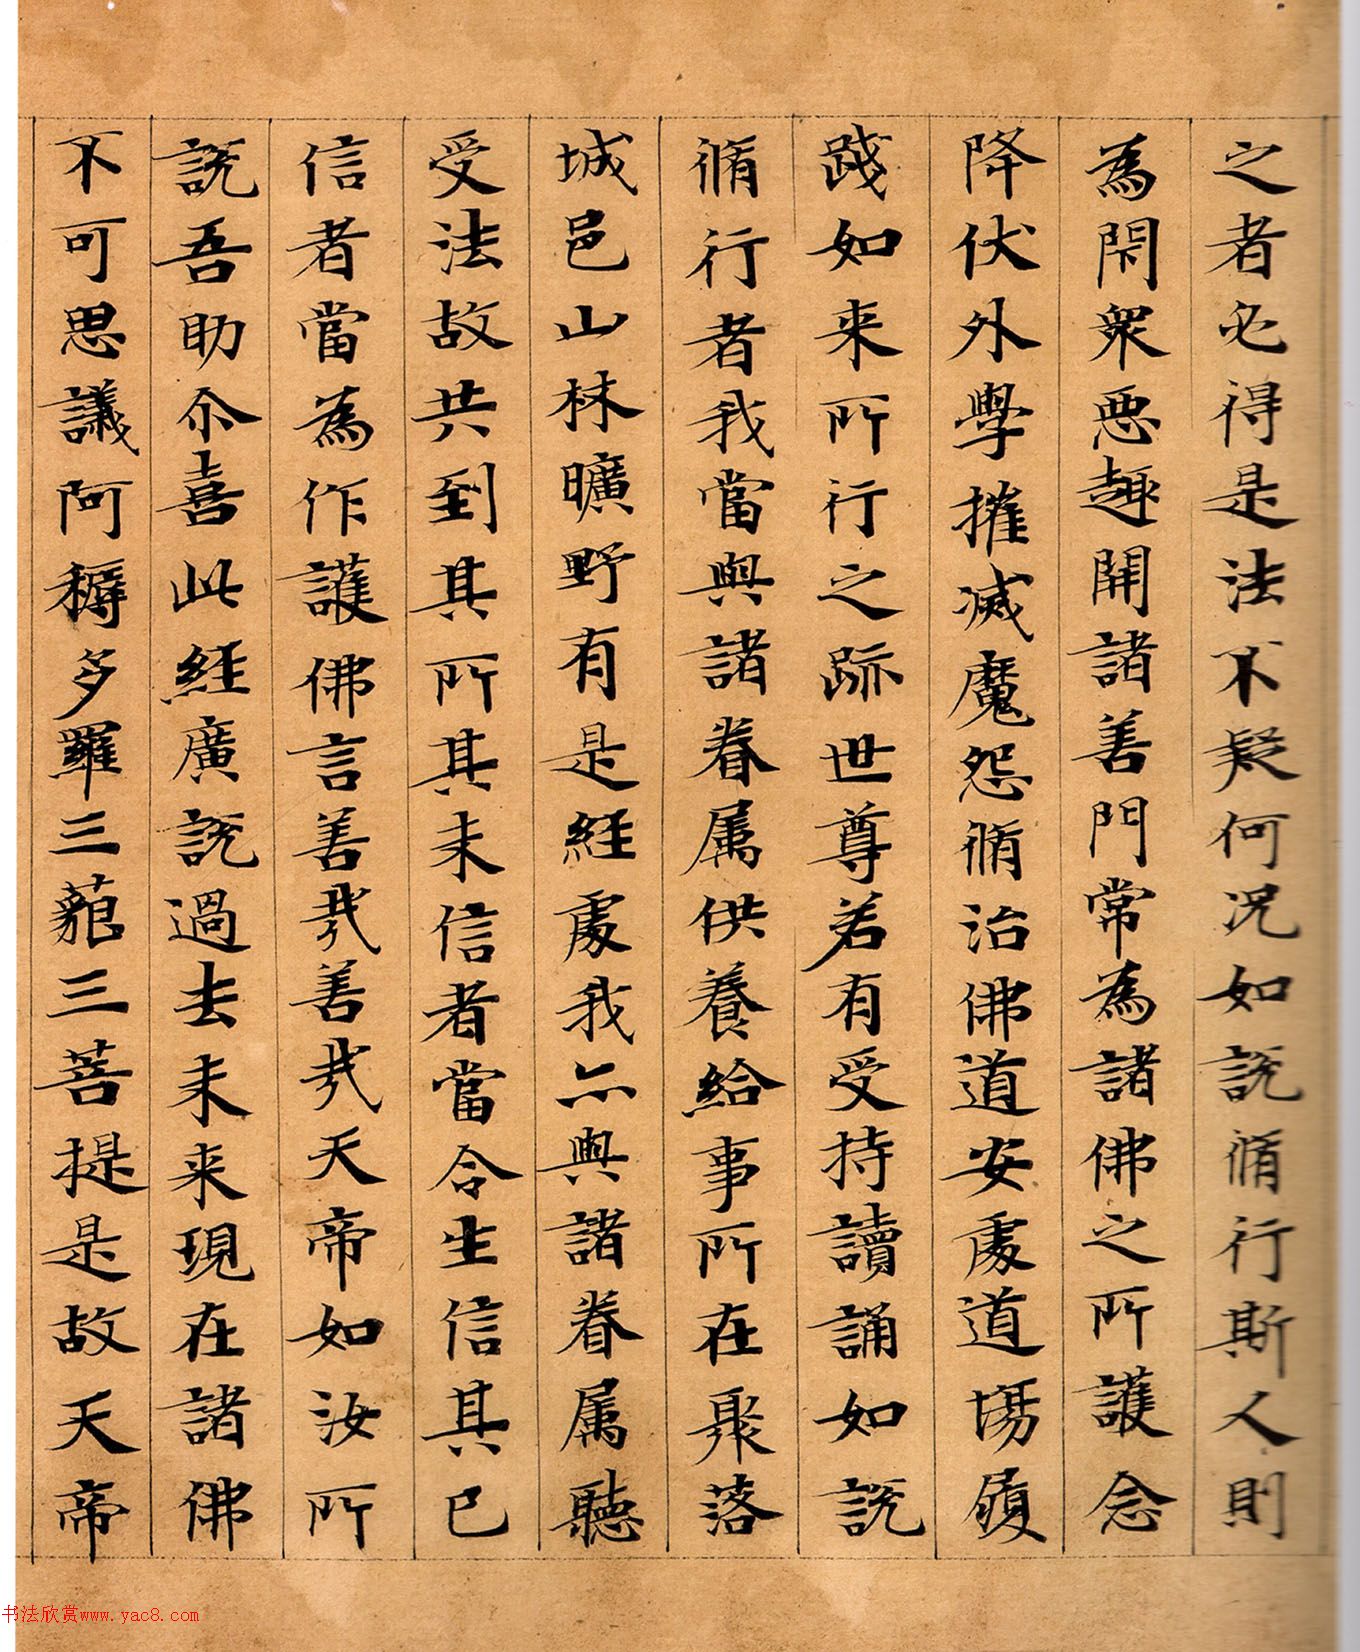 之者必得是法不疑何况如説脩行斯人則
為閇衆惡趣開諸善門常為諸佛之所護念
降伏外學摧滅魔怨脩治佛道安處道場履
踐如来所行之跡世尊若有受持讀誦如説
脩行者我當與諸眷属供養給事所在聚落
城邑山林曠野有是經處我亦與諸眷属聽
受法故共到其所其未信者當令生信其已
信者當為作護佛言善哉善哉天帝如汝所
説吾助尒喜此經廣説過去未来現在諸佛
不可思議阿耨多羅三藐三菩提是故天帝
书法欣赏www.yac8.com